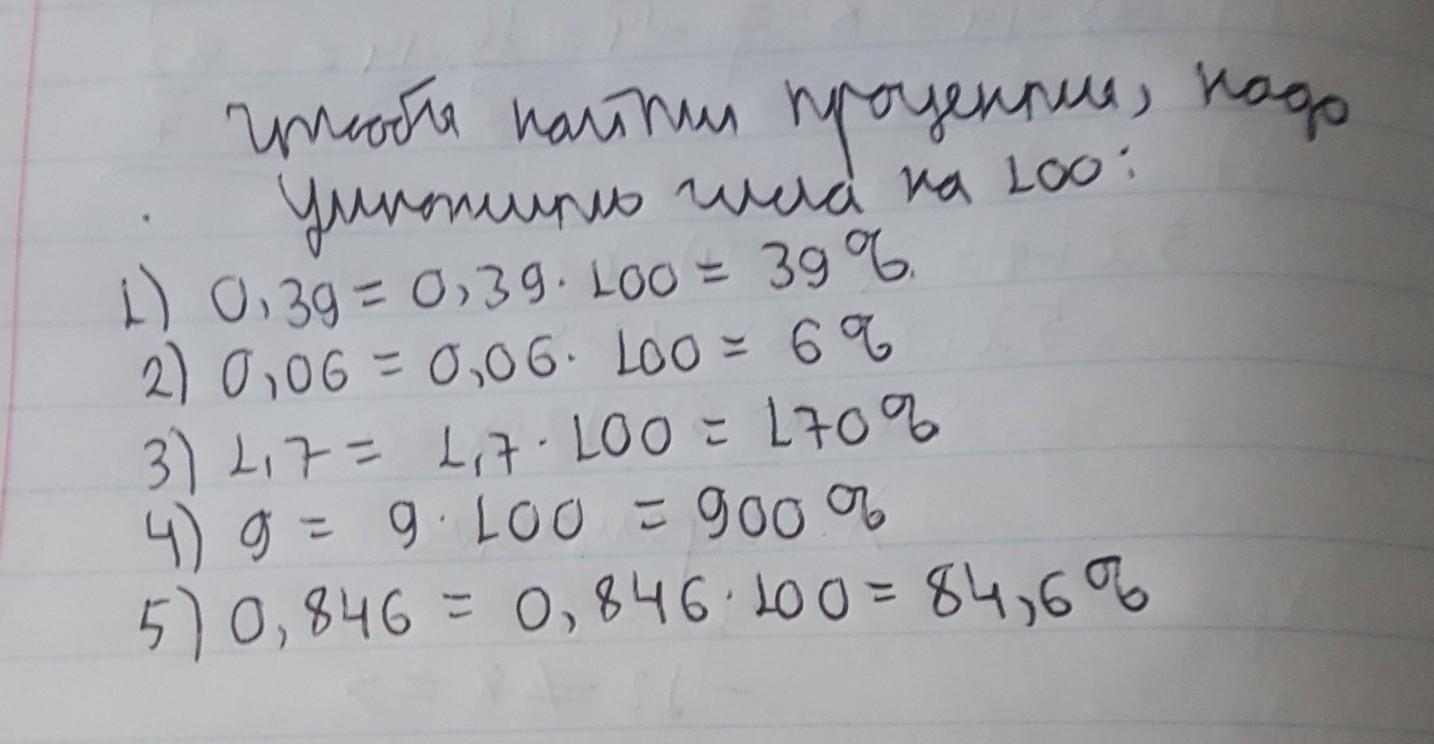 Чтобы найти проценты, надо
умножить числа на 100:
1) 0,39 = 0,39 · 100 = 39%
2) 0,06 = 0,06 · 100 = 6%
3) 1,7 = 1,7 · 100 = 170%
4) 9 = 9 · 100 = 900%
5) 0,846 = 0,846 · 100 = 84,6%